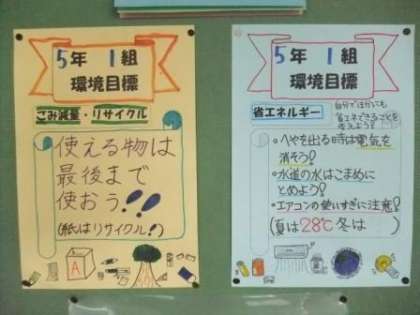 5年 1組
環境目標
ごみ減量・リサイクル
使える物は
最後まで
使おう!!
(紙はリサイクル!)
A
5年 1組
環境目標
省エネルギー
自分でほかにも
省エネできることを
考えよう!
・へやを出る時は電気を
消そう!
・水道の水はこまめに
とめよう!
・エアコンの使いすぎに注意!
(夏は28℃ 冬は　　)